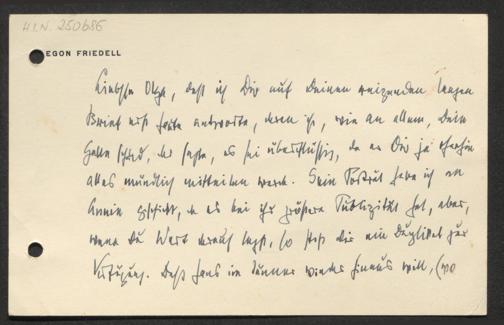 H.I.N. 250686
EGON FRIEDELL
Liebste Olga, daß ich Dir auf Deinen reizenden langen
Brief erst heute antworte, daran ist, wie an allem, Dein
Gatte schuld, der sagte, es sei überflüssig, da er Dir ja ohnehin
alles mündlich mitteilen werde. Sein Porträt habe ich an
Annie geschickt, da es bei ihr größere Publizität hat, aber,
wenn Du Wert darauf legst, so steht Dir ein Duplikat zur
Verfügung. Daß Hans im Jänner wieder hinaus will, (wo